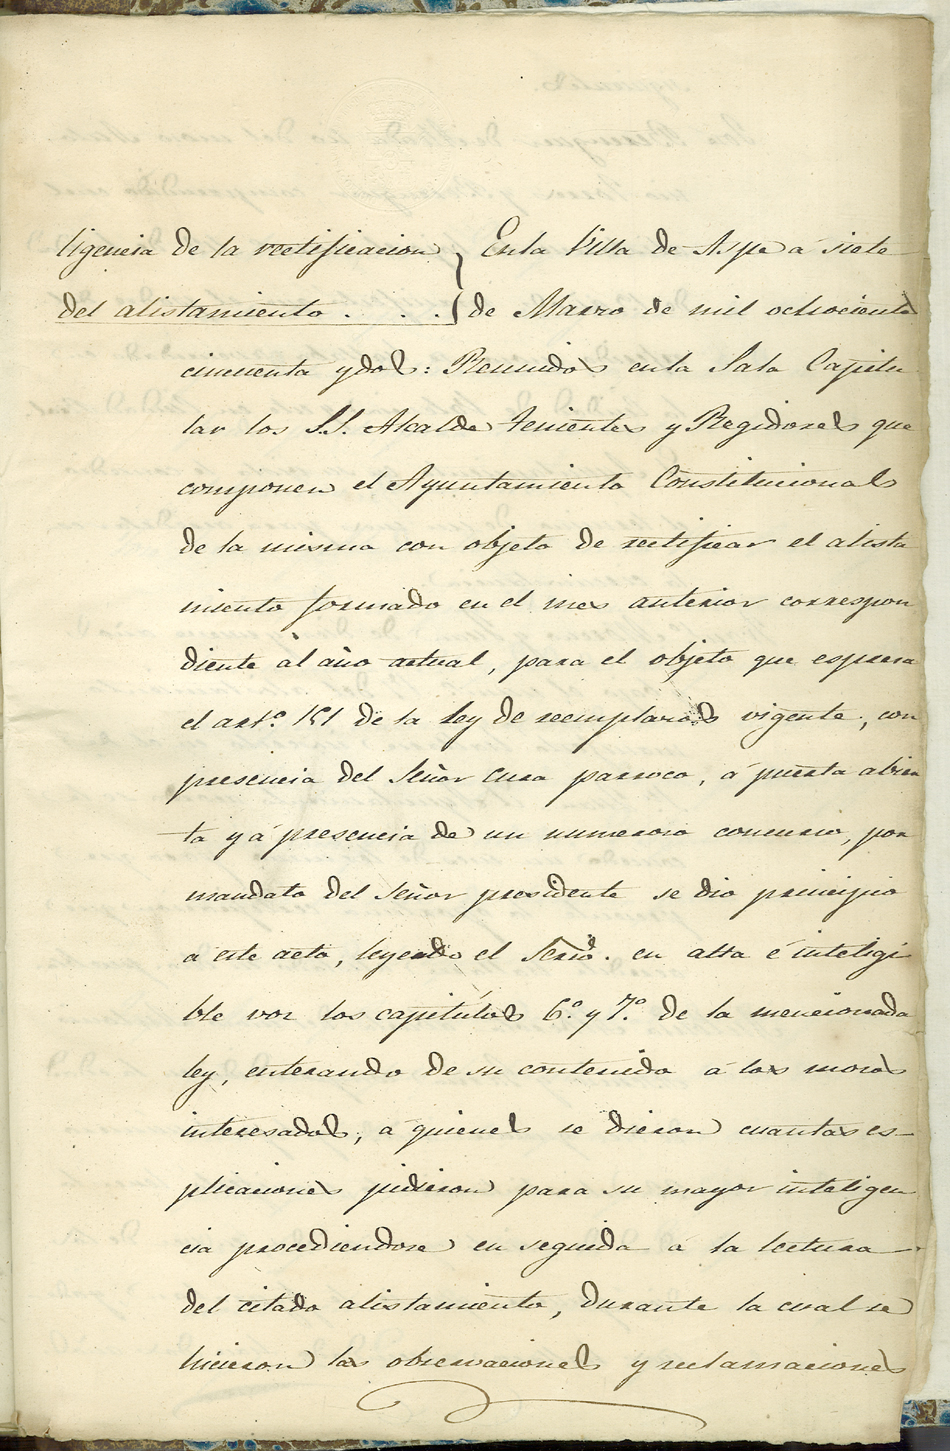 ligencia de la rectificacion
del alistamiento . . .
En la Villa de Aspe á siete
de Marzo de mil ochociento
cincuenta y dos: Reunidos en la Sala Capitu
lar los S.S. Alcalde tenientes y Regidores que
componen el Ayuntamiento Constitucional
de la misma con objeto de rectificar el alista
miento formado en el mes anterior correspon
diente al año actual, para el objeto que espresa
el art.º de la ley de reemplazos vigente, con
presencia del Señor cura parroco, á puerta abier
ta y á presencia de un numeroso concurso, por
mandato del Señor presidente se dio principio
a este acto, leyendo el Serio. en alta é inteligi
ble voz los capitulos 6.º y 7.º de la mencionada
ley, enterando de su contenido á los mozos
interesados, á quienes se dieron cuantas es-
plicaciones pidieron para su mayor inteligen
cia procediendose en seguida á la lectura
del citado alistamiento, durante la cual se
hicieron las observaciones y reclamaciones